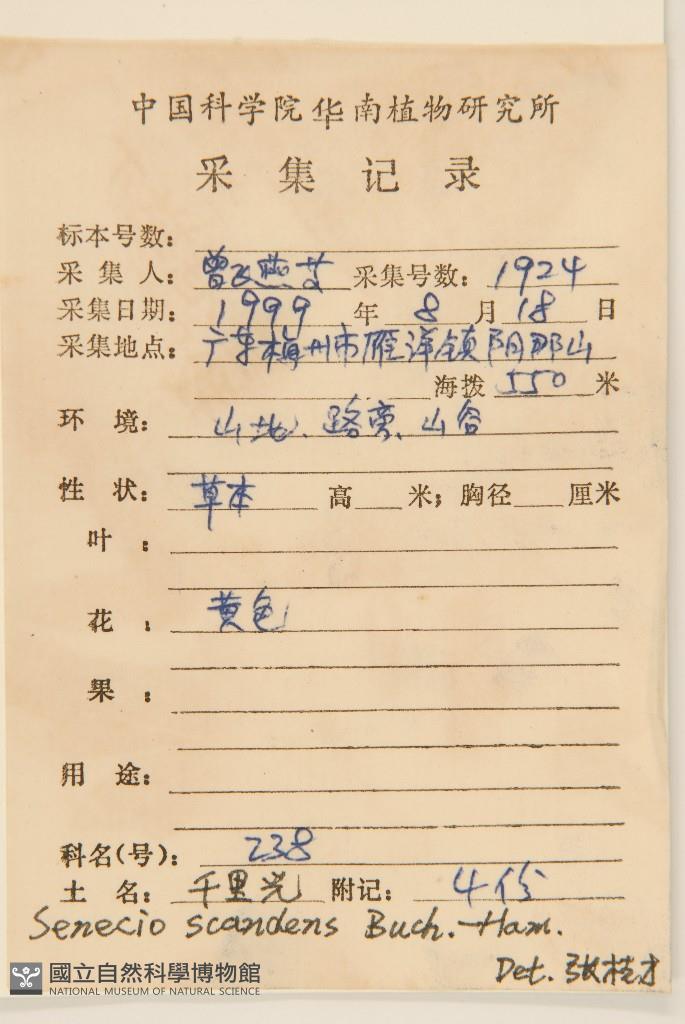 中国科学院华南植物研究所
采集记录
标本号数：
采集人：曾飞燕 采集号数：1924
采集日期：1999 年 8 月 18 日
采集地点：广东梅州市雁洋镇阴那山
海拨 550 米
环境：山地、路旁、山谷
性状：草本 高 米；胸径 厘米
叶：
花：黄色
果：
用途：
科名(号)：238
土名：千里光 附记：4份
Senecio scandens Buch.-Ham.
Det. 张桂才
國立自然科學博物館
NATIONAL MUSEUM OF NATURAL SCIENCE